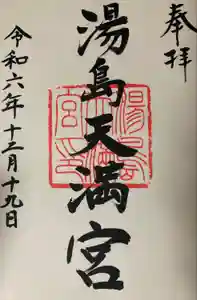 奉拝
湯島天満宮
令和六年十二月十九日